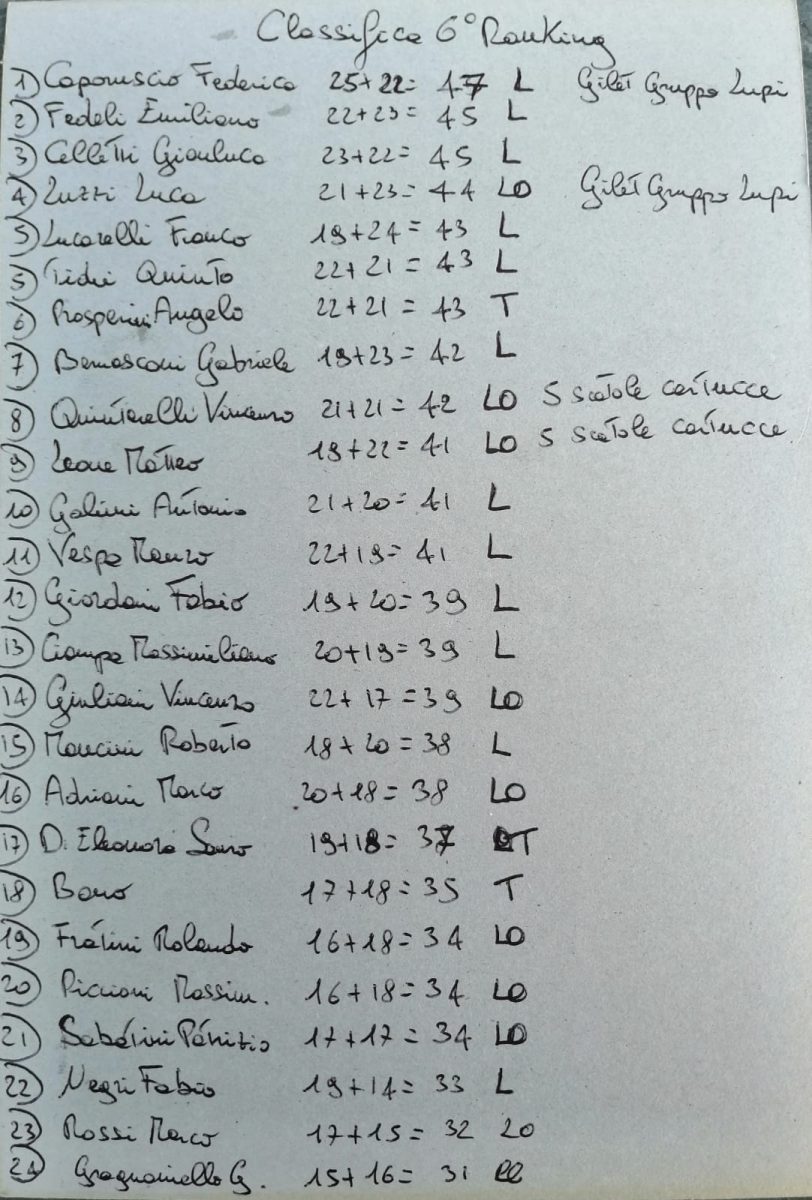 Classifica 6° Ranking
1) Caporuscio Federico 25+22= 47 L Gilet Gruppo Lupi
2) Fedeli Emiliano 22+23= 45 L
3) Celletti Gianluca 23+22= 45 L
4) Luzzi Luca 21+23= 44 LO Gilet Gruppo Lupi
5) Lucarelli Franco 19+24= 43 L
5) Tidei Quinto 22+21= 43 L
6) Prosperini Angelo 22+21= 43 T
7) Bernasconi Gabriele 19+23= 42 L
8) Quintarelli Vincenzo 21+21= 42 LO 5 scatole cartucce
9) Leone Matteo 19+22= 41 LO 5 scatole cartucce
10) Galini Antonio 21+20= 41 L
11) Vespa Renzo 22+19= 41 L
12) Giordani Fabio 19+20= 39 L
13) Ciampa Massimiliano 20+19= 39 L
14) Giuliani Vincenzo 22+17= 39 LO
15) Mancini Roberto 18+20= 38 L
16) Adriani Marco 20+18= 38 LO
17) D. Eleonora 19+18= 37 T
18) Bono 17+18= 35 T
19) Fratini Rolando 16+18= 34 LO
20) Piccioni Massim. 16+18= 34 LO
21) Sabatini Patrizio 17+17= 34 LO
22) Negri Fabio 19+14= 33 L
23) Rossi Marco 17+15= 32 LO
24) Gragnaniello G. 15+16= 31